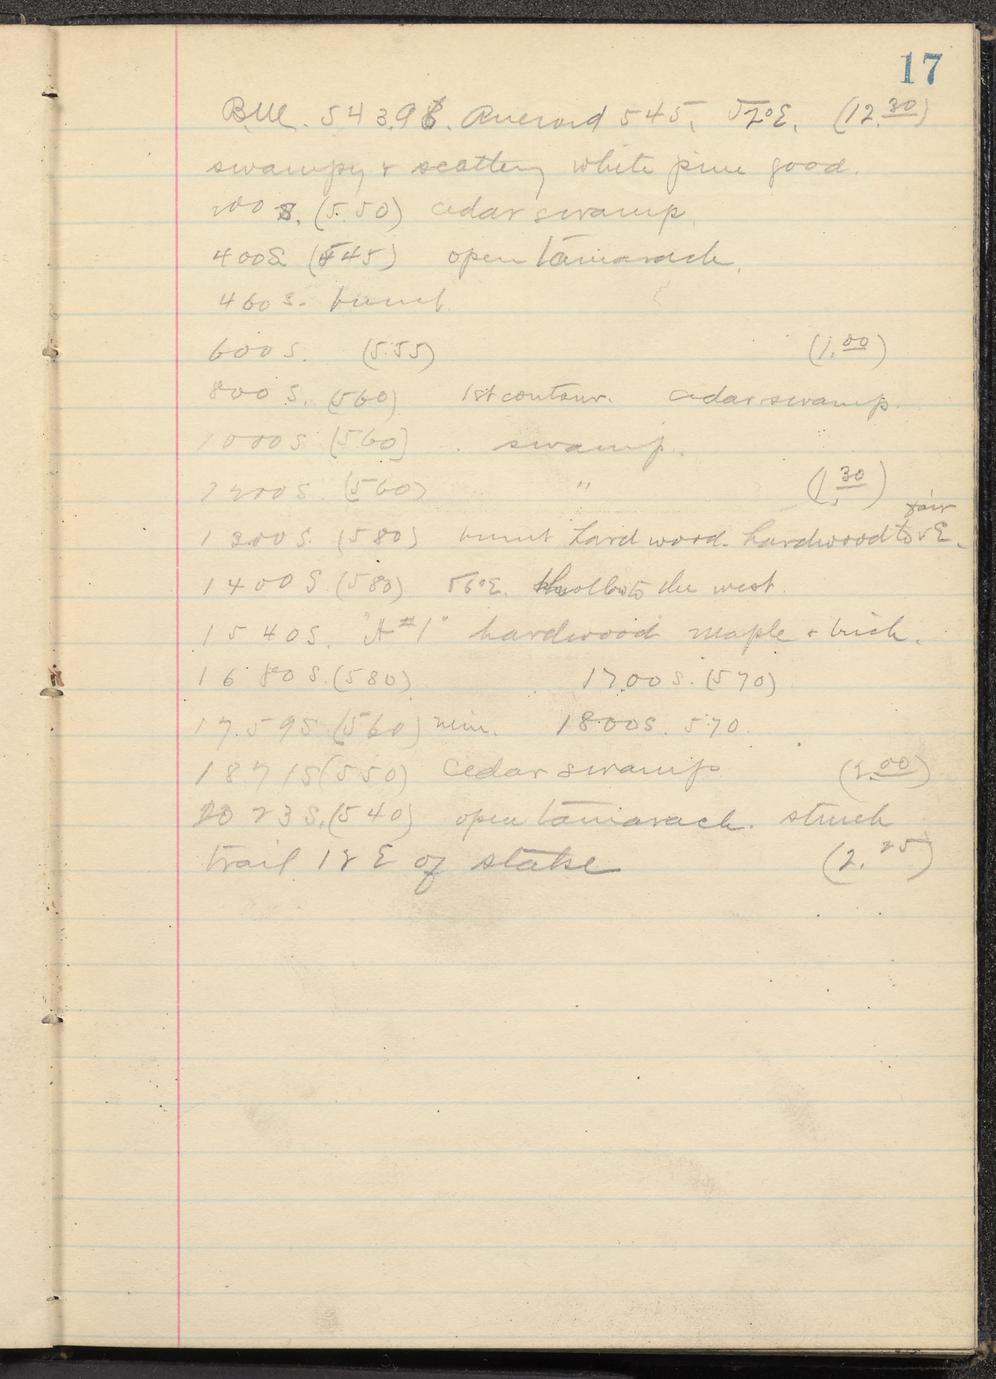 17
B.M. 543.98. Aneroid 545. 52°E. (12.30)
swampy & scattery white pine good.
200 S. (550) cedar swamp.
400 S (545) open tamarack.
460 S. burnt
600 S. (555) (1.00)
800 S. (560) 1st contour. cedar swamp.
1000 S (560) swamp.
1200 S. (560) " (1.30)
fair
1300 S. (580) burnt hard wood. hardwood to E.
1400 S. (580) 56°E. to the west.
1540 S. "A#1" hardwood maple & birch.
1680 S. (580) 1700 S. (570)
1759 S (560) min. 1800 S. 570.
1871 S (550) cedar swamp (2.00)
2023 S. (540) open tamarack. struck
trail 12 E of stake (2.25)